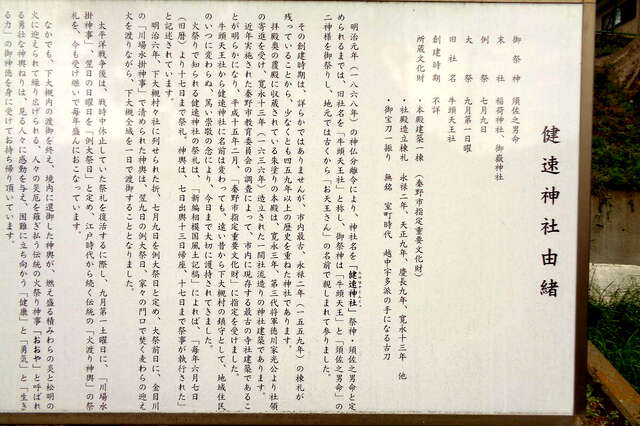 健速神社由緒
御祭神 須佐之男命
末社 稲荷神社、御嶽神社
例祭 七月九日
大祭 九月第一日曜
旧社名 牛頭天王社
創建時期 不詳
所蔵文化財 本殿建築一棟 (秦野市指定重要文化財)
・社殿造立棟札 永禄二年、天正九年、慶長九年、寛永十三年 他
・御宝刀一振り 無銘 室町時代 越中宇多派の手になる古刀
明治元年(一八六八年)の神仏分離令により、神社名を「健速神社」祭神・須佐之男命と定
められるまでは、旧社名を「牛頭天王社」と称し、御祭神は「牛頭天王」と「須佐之男命」の
二神様を御祭りし、地元では古くから「お天王さん」の名前で親しまれて参りました。
その創建時期は、詳らかではありませんが、市内最古、永禄二年(一五五九年)の棟札が
残っていることから、少なくとも四五九年以上の歴史を重ねた神社であります。
拝殿奥の覆殿に収蔵されている朱塗りの本殿は、寛永三年、第三代将軍徳川家光公より社領
の寄進を受け、寛永十三年(一六三六年)造立された一間社流造りの神社建築であります。
近年実施された秦野市教育委員会の調査によって、市内に現存する最古の寺社建築であるこ
とが明らかになり、平成十五年二月、「秦野市指定重要文化財」に指定を受けました。
牛頭天王社から健速神社に名前は変わっても、遠い昔から下大槻村の鎮守として、地域住民
のいつに変わらぬ、篤い崇敬の念により、今日まで大切に護持されてきました。
火祭りで知られる健速神社の祭礼は、「新編相模国風土記稿」によれば、「毎年六月七日
(旧暦)より十七日まで祭礼、神輿は、七日出輿十三日帰座、十七日まで祭事が執行された」
と記述されています。
明治六年、下大槻村々社に列せられた折、七月九日を例大祭日と定め、大祭前日に、金目川
の「川場水掛神事」で清められた神輿は、翌九の例大祭日、家々の門口で焚く麦わらの迎え
火を渡りながら、下大槻全域を一日で渡御することとなりました。
太平洋戦争後は、戦時中休止していた祭礼を復活するに際し、九月第一土曜日に、「川場水
掛神事」、翌日の日曜日を「例大祭日」と定め、江戸時代から続く伝統の「火渡り神輿」の祭
礼を、今も受け継いで毎年盛んにおこなっています。
なかでも、下大槻内の渡御を終え、境内に還御した神輿が、燃え盛る積みわらの炎と松明の
火に迎えられて繰り広げられる、人々の災厄を薙ぎ払う伝統の火祭り神事「おおや」と呼ばれ
る勇壮な神輿ねりは、見る人々に感動を与え、困難に立ち向かう「健康」と「勇気」と「生き
る力」の御神徳を身に受けてお持ち帰り頂いています。